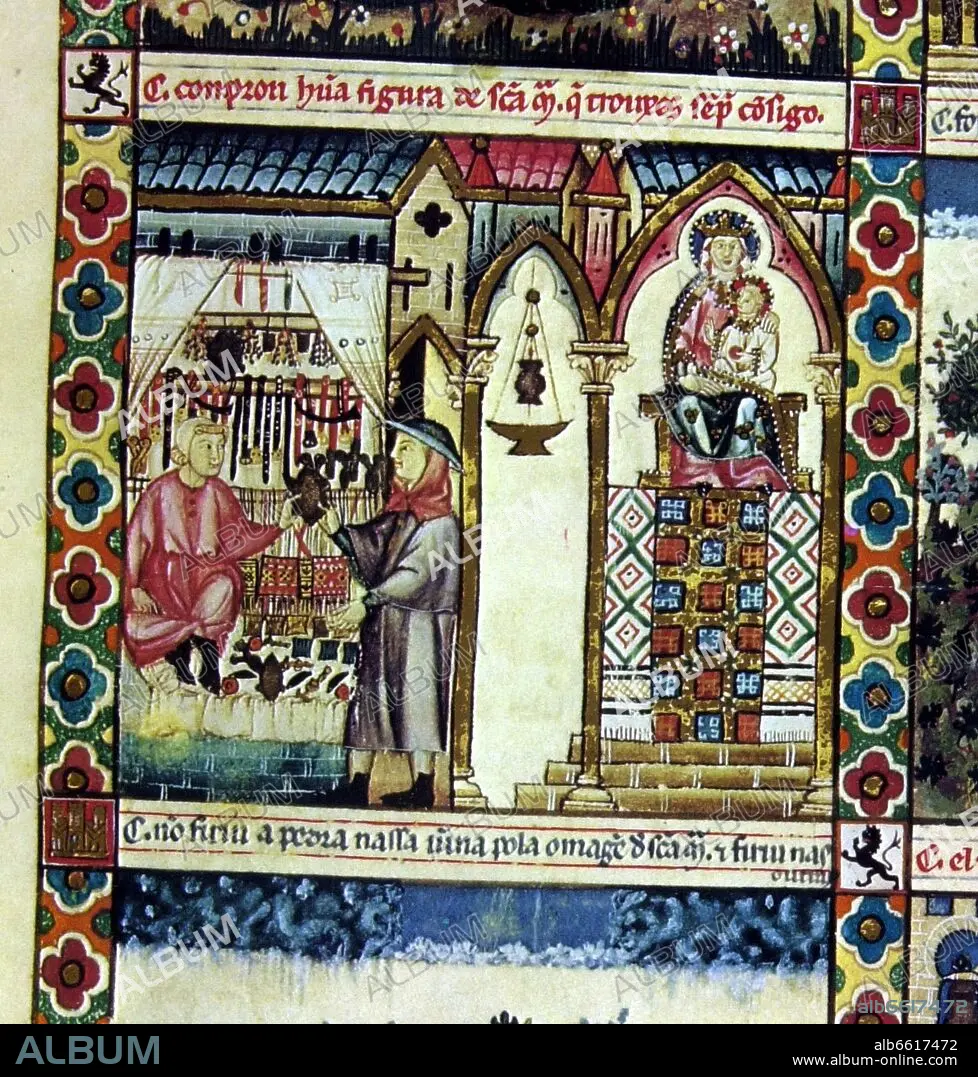 C. conpron hũa figura de sc̃a m̃. q̃ trouxes sẽp̃ cõsigo.
C. fo
C. nõ firiu a pedra nassa vinna pola omagẽ d sc̃a m̃. ⁊ firiu nas
C. el
ALBUM
alb6617472
ALBUM
alb6617472
www.album-online.com